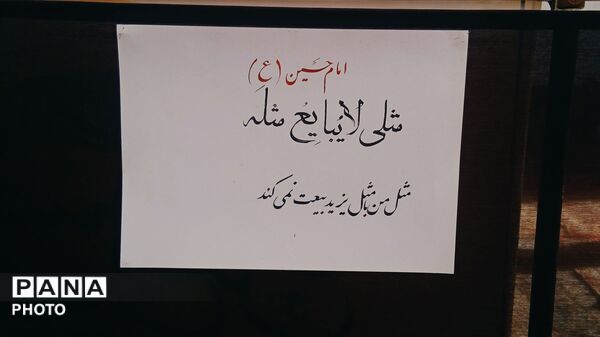 امام حسین (ع)
مثلی لایُبایِعُ مثلَه
مثل من با مثل یزید بیعت نمی کند
PANA
PHOTO